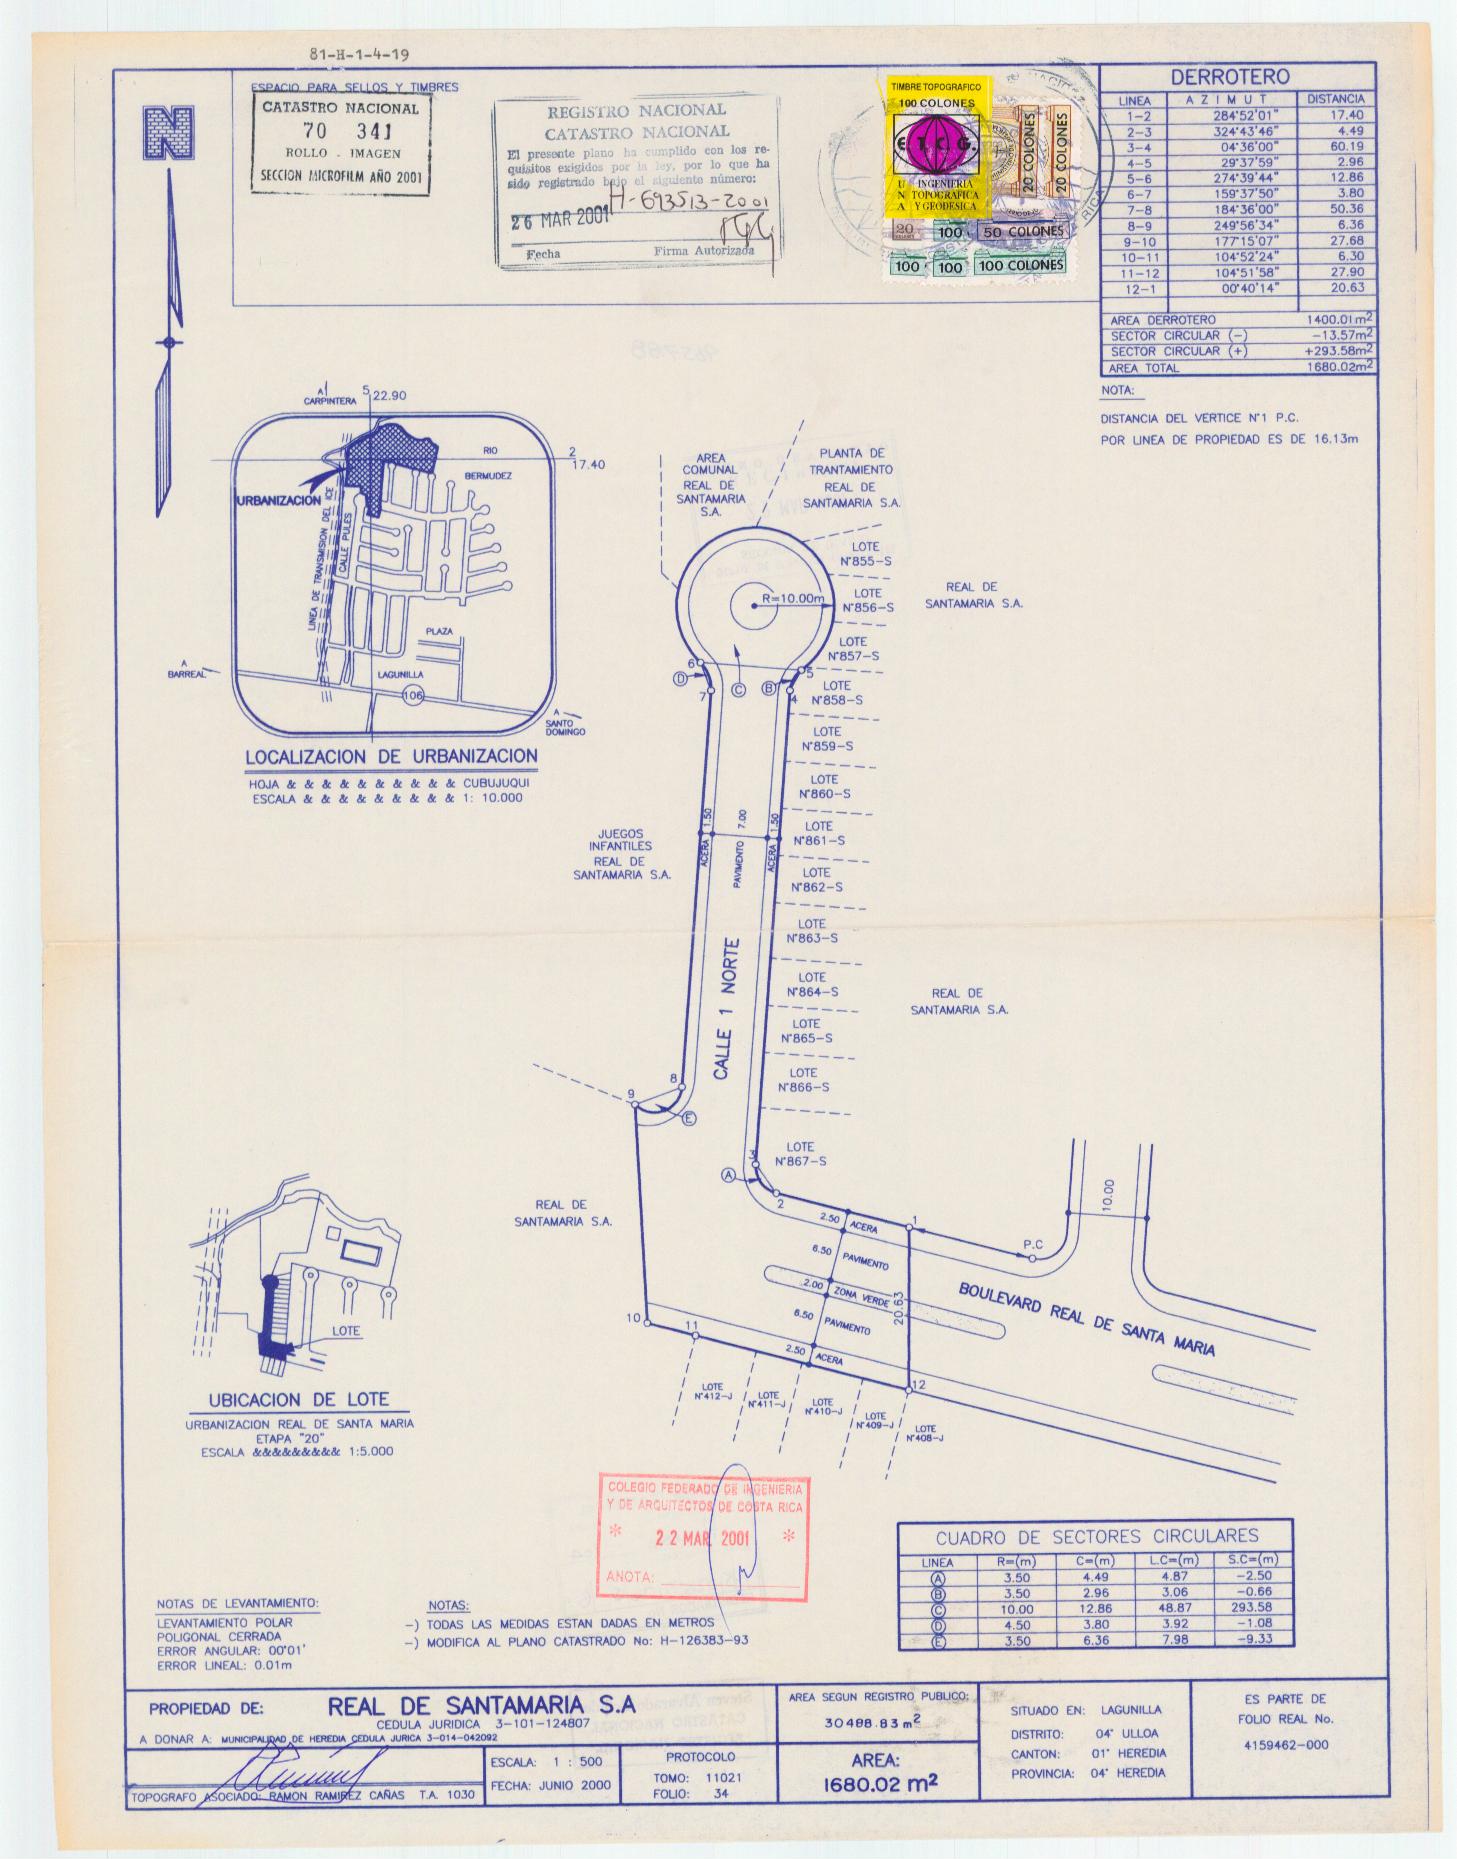 81-H-1-4-19
ESPACIO PARA SELLOS Y TIMBRES
CATASTRO NACIONAL
70 341
ROLLO - IMAGEN
SECCION MICROFILM AÑO 2001
REGISTRO NACIONAL
CATASTRO NACIONAL
El presente plano ha cumplido con los re-
quisitos exigidos por la ley, por lo que ha
sido registrado bajo el siguiente número:
H-693513-2001
26 MAR 2001
Fecha Firma Autorizada
TIMBRE TOPOGRAFICO
100 COLONES
E. T. C. G.
U INGENIERIA
N TOPOGRAFICA
A Y GEODESICA
20 COLONES
20 COLONES
20 100 50 COLONES
100 100 100 COLONES
DERROTERO
LINEA AZIMUT DISTANCIA
1-2 284°52'01" 17.40
2-3 324°43'46" 4.49
3-4 04°36'00" 60.19
4-5 29°37'59" 2.96
5-6 274°39'44" 12.86
6-7 159°37'50" 3.80
7-8 184°36'00" 50.36
8-9 249°56'34" 6.36
9-10 177°15'07" 27.68
10-11 104°52'24" 6.30
11-12 104°51'58" 27.90
12-1 00°40'14" 20.63
AREA DERROTERO 1400.01m²
SECTOR CIRCULAR (-) -13.57m²
SECTOR CIRCULAR (+) +293.58m²
AREA TOTAL 1680.02m²
NOTA:
DISTANCIA DEL VERTICE N°1 P.C.
POR LINEA DE PROPIEDAD ES DE 16.13m
N
A
CARPINTERA
5 22.90
RIO
BERMUDEZ
2
17.40
URBANIZACION
LINEA DE TRANSMISION DEL ICE
CALLE PULES
PLAZA
A
BARREAL
LAGUNILLA
106
A
SANTO
DOMINGO
LOCALIZACION DE URBANIZACION
HOJA & & & & & & & & & & CUBUJUQUI
ESCALA & & & & & & & & & 1: 10.000
AREA
COMUNAL
REAL DE
SANTAMARIA
S.A.
PLANTA DE
TRANTAMIENTO
REAL DE
SANTAMARIA S.A.
R=10.00m
LOTE
N°855-S
LOTE
N°856-S
LOTE
N°857-S
LOTE
N°858-S
LOTE
N°859-S
LOTE
N°860-S
LOTE
N°861-S
LOTE
N°862-S
LOTE
N°863-S
LOTE
N°864-S
LOTE
N°865-S
LOTE
N°866-S
LOTE
N°867-S
REAL DE
SANTAMARIA S.A.
6
D
7
C
B
5
4
JUEGOS
INFANTILES
REAL DE
SANTAMARIA S.A.
ACERA 1.50
PAVIMENTO 7.00
ACERA 1.50
CALLE 1 NORTE
REAL DE
SANTAMARIA S.A.
8
9
E
3
A
2
1
P.C
10.00
REAL DE
SANTAMARIA S.A.
2.50 ACERA
6.50 PAVIMENTO
2.00 ZONA VERDE
6.50 PAVIMENTO
2.50 ACERA
20.63
BOULEVARD REAL DE SANTA MARIA
10
11
12
LOTE
N°412-J
LOTE
N°411-J
LOTE
N°410-J
LOTE
N°409-J
LOTE
N°408-J
LOTE
UBICACION DE LOTE
URBANIZACION REAL DE SANTA MARIA
ETAPA "20"
ESCALA &&&&&&&&& 1:5.000
COLEGIO FEDERADO DE INGENIERIA
Y DE ARQUITECTOS DE COSTA RICA
* 22 MAR 2001 *
ANOTA:
CUADRO DE SECTORES CIRCULARES
LINEA R=(m) C=(m) L.C=(m) S.C=(m)
A 3.50 4.49 4.87 -2.50
B 3.50 2.96 3.06 -0.66
C 10.00 12.86 48.87 293.58
D 4.50 3.80 3.92 -1.08
E 3.50 6.36 7.98 -9.33
NOTAS DE LEVANTAMIENTO:
LEVANTAMIENTO POLAR
POLIGONAL CERRADA
ERROR ANGULAR: 00°01'
ERROR LINEAL: 0.01m
NOTAS:
-) TODAS LAS MEDIDAS ESTAN DADAS EN METROS
-) MODIFICA AL PLANO CATASTRADO No: H-126383-93
PROPIEDAD DE: REAL DE SANTAMARIA S.A
CEDULA JURIDICA 3-101-124807
A DONAR A: MUNICIPALIDAD DE HEREDIA CEDULA JURICA 3-014-042092
TOPOGRAFO ASOCIADO: RAMON RAMIREZ CAÑAS T.A. 1030
ESCALA: 1 : 500
FECHA: JUNIO 2000
PROTOCOLO
TOMO: 11021
FOLIO: 34
AREA SEGUN REGISTRO PUBLICO:
30498.83 m²
AREA:
1680.02 m²
SITUADO EN: LAGUNILLA
DISTRITO: 04° ULLOA
CANTON: 01° HEREDIA
PROVINCIA: 04° HEREDIA
ES PARTE DE
FOLIO REAL No.
4159462-000